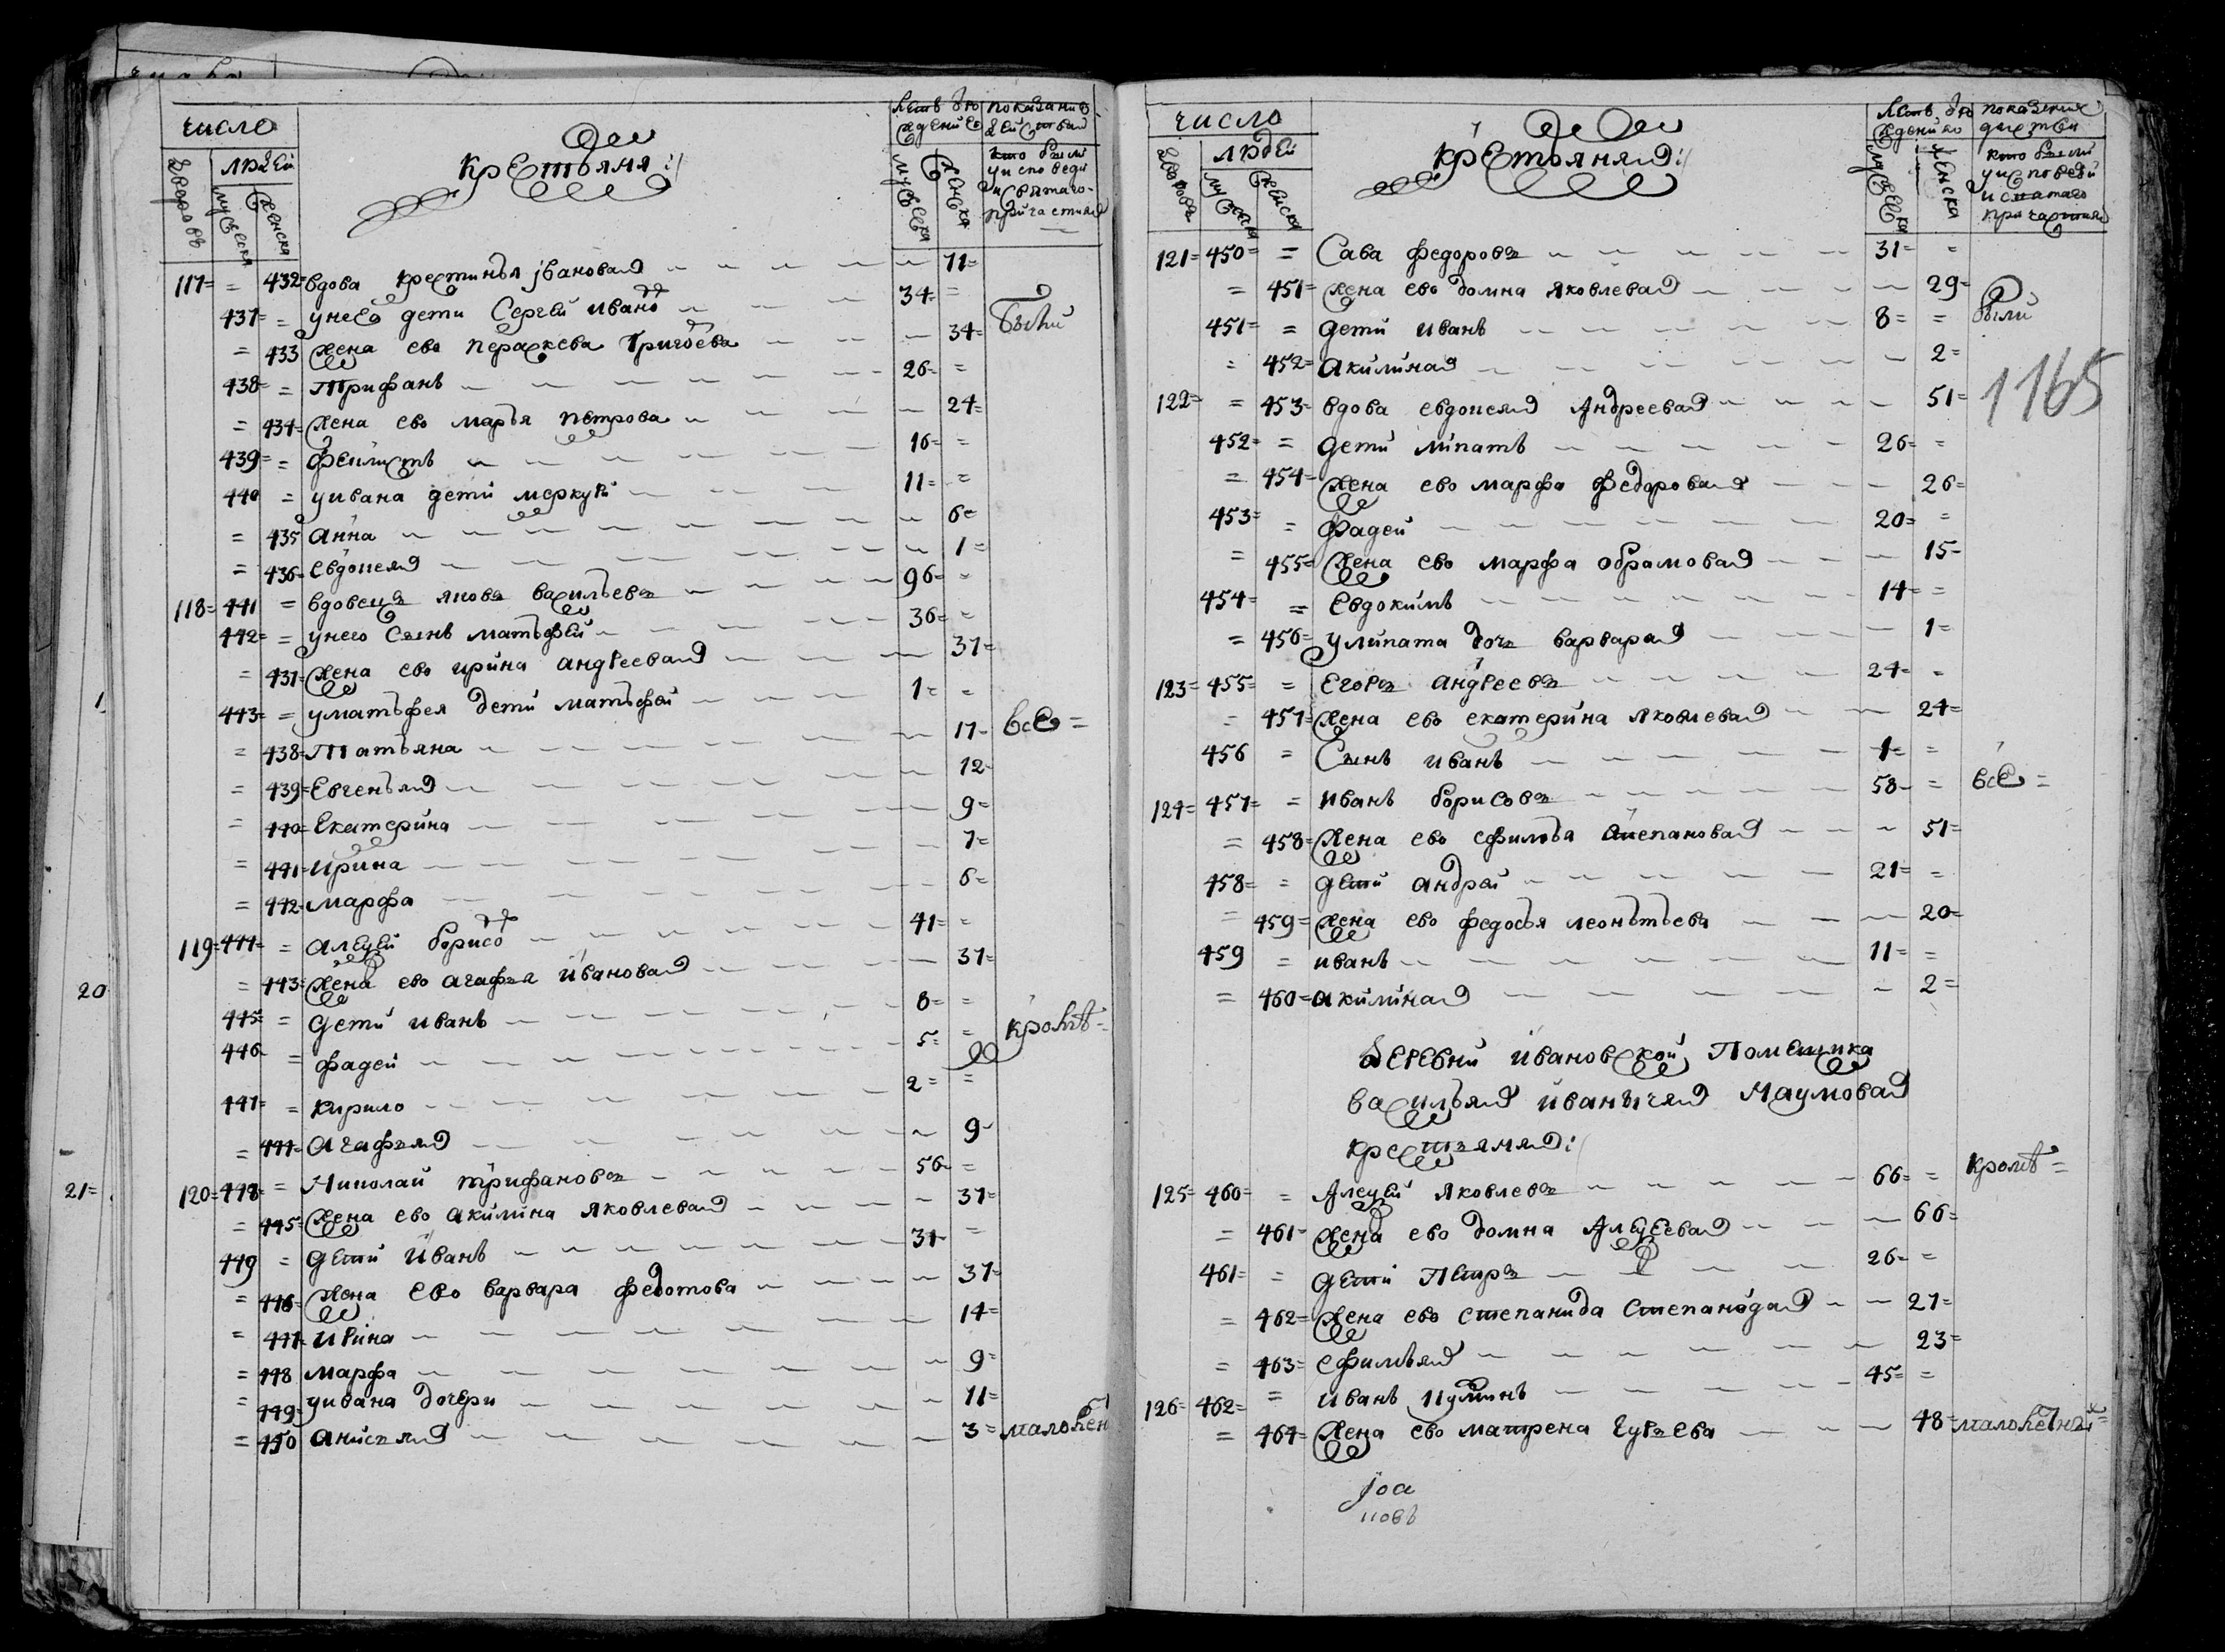 число
крестьяня
летъ ᲂю
показание
людей
дворовъ
мужеска
женска
кто были
у исповеди
и святаго
причастия
117 = 432 вдова крестинья ивановая 71
437 = у нея дети Сергей ивано 34 =
Были
= 433 жена ево Параскева Григоева 34
438 = Трифанъ 26 =
= 434 жена ево марья петрова 24
439 = Феилистъ 16 =
440 = у ивана дети меркурй 11 =
= 435 анна 6
= 436 евдокея 1
118 441 = вдовецъ яковъ васильевъ 96 =
442 = у него Сынъ матьфей 36 =
= 437 жена ево ирина андреевая 37
443 = у матьфея дети матьфей 1 =
= 438 Татьяна 17
все
= 439 Евгенья 12
= 440 Екатерина 9
= 441 ирина 7
= 442 марфа 6
119 444 = алеѯей борисо 41 =
= 443 жена ево агафья ивановая 37
445 = дети иванъ 8 =
кроме
446 = фадей 5 =
447 = кирило 2 =
= 444 Агафья 9
120 448 = Николай трифановъ 56 =
= 445 жена ево акилина яковлевая 37
449 = дети иванъ 31 =
= 446 жена ево варвара федотова 37
= 447 ирина 14
= 448 марфа 9
= 449 у ивана дочери 11
= 450 анисья 3
малолен
1
20
21
число
крестьяня
людей
мужеска
женска
кто были
у исповеди
и святаго
причастия
121 450 = Сава федоровъ 31 =
= 451 жена ево домна яковлевая 29
451 = дети иванъ 8 =
были
= 452 акилиная 2
1165
122 = 453 вдова евдокея Андреевая 51
452 = дети липатъ 26 =
= 454 жена ево марфа федоровая 26
453 = фадей 20 =
= 455 жена ево марфа обрамовая 15
454 = Евдокимъ 14 =
= 456 у липата дочь варварая 1
123 455 = Егоръ андреевъ 24 =
= 457 жена ево екатерина яковлевая 24
456 = Сынъ иванъ 1 =
124 457 = иванъ борисовъ 58 =
все
= 458 жена ево ефимья степановая 51
458 = дети андрей 21 =
= 459 жена ево федосья леонътьева 20
459 = иванъ 11 =
= 460 акилиная 2
деревни ивановской Помещика
васильея иванычея Наумовая
крестьяня
125 460 = Алеѯей яковлевъ 66 =
кроме
= 461 жена ево домна Алеѯеевая 66
461 = дети Петръ 26 =
= 462 жена ево степанида степановая 27
= 463 ефимья 23
126 462 = иванъ 45 =
= 464 жена ево матрена гурьева 48
малолетныхъ
јоа
новъ